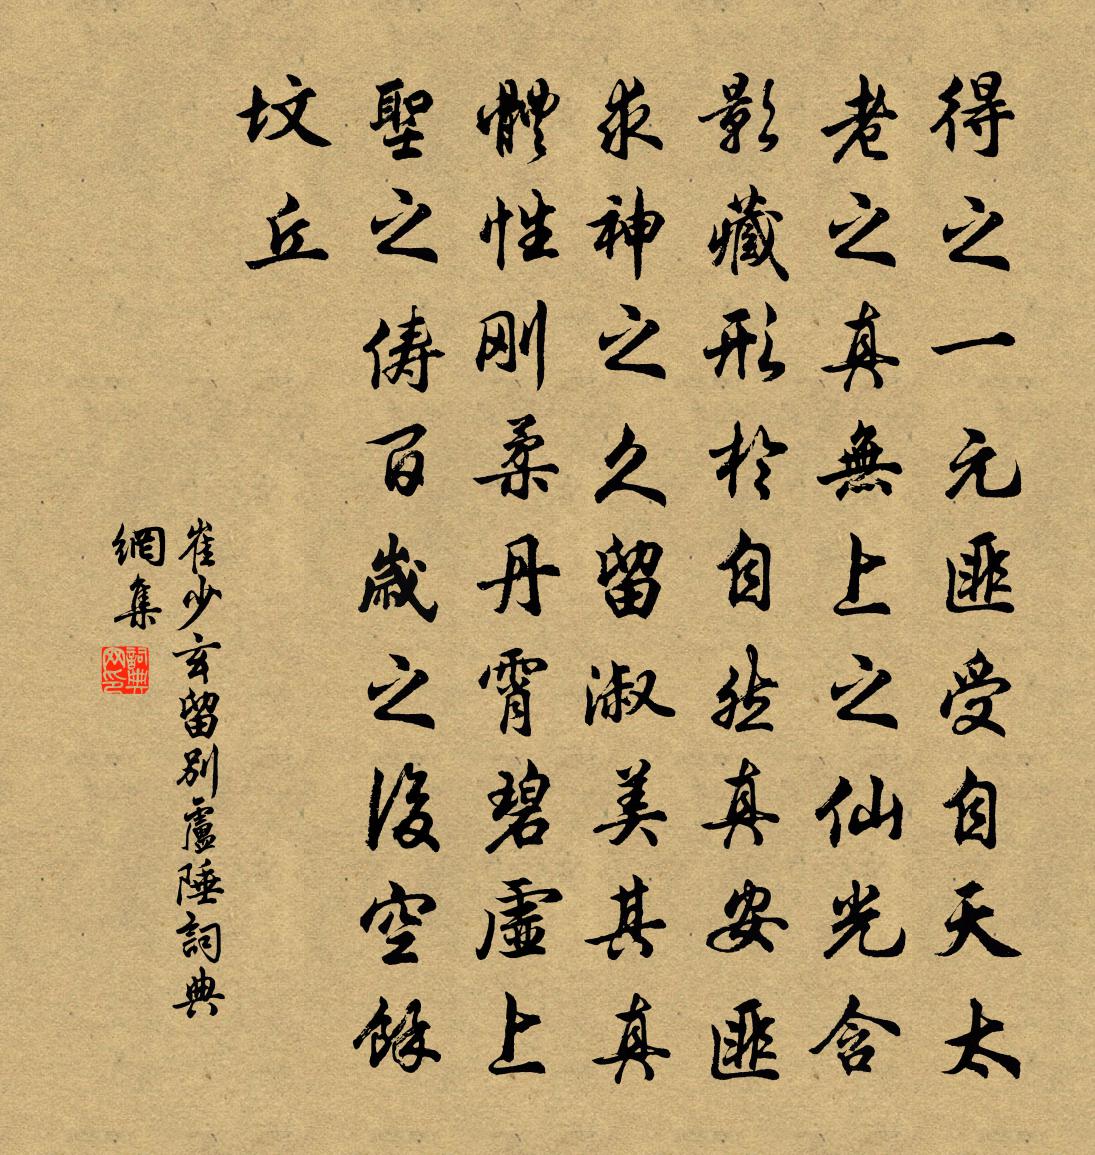 得之一元匪受自天太
老之真無上之仙光含
影藏形於自然真安匪
求神之久留淑美其真
體性刚柔丹霄碧虛上
聖之俦百歲之後空餘
坟丘
崔少玄留別盧陲詞典
網集
詞典
网印